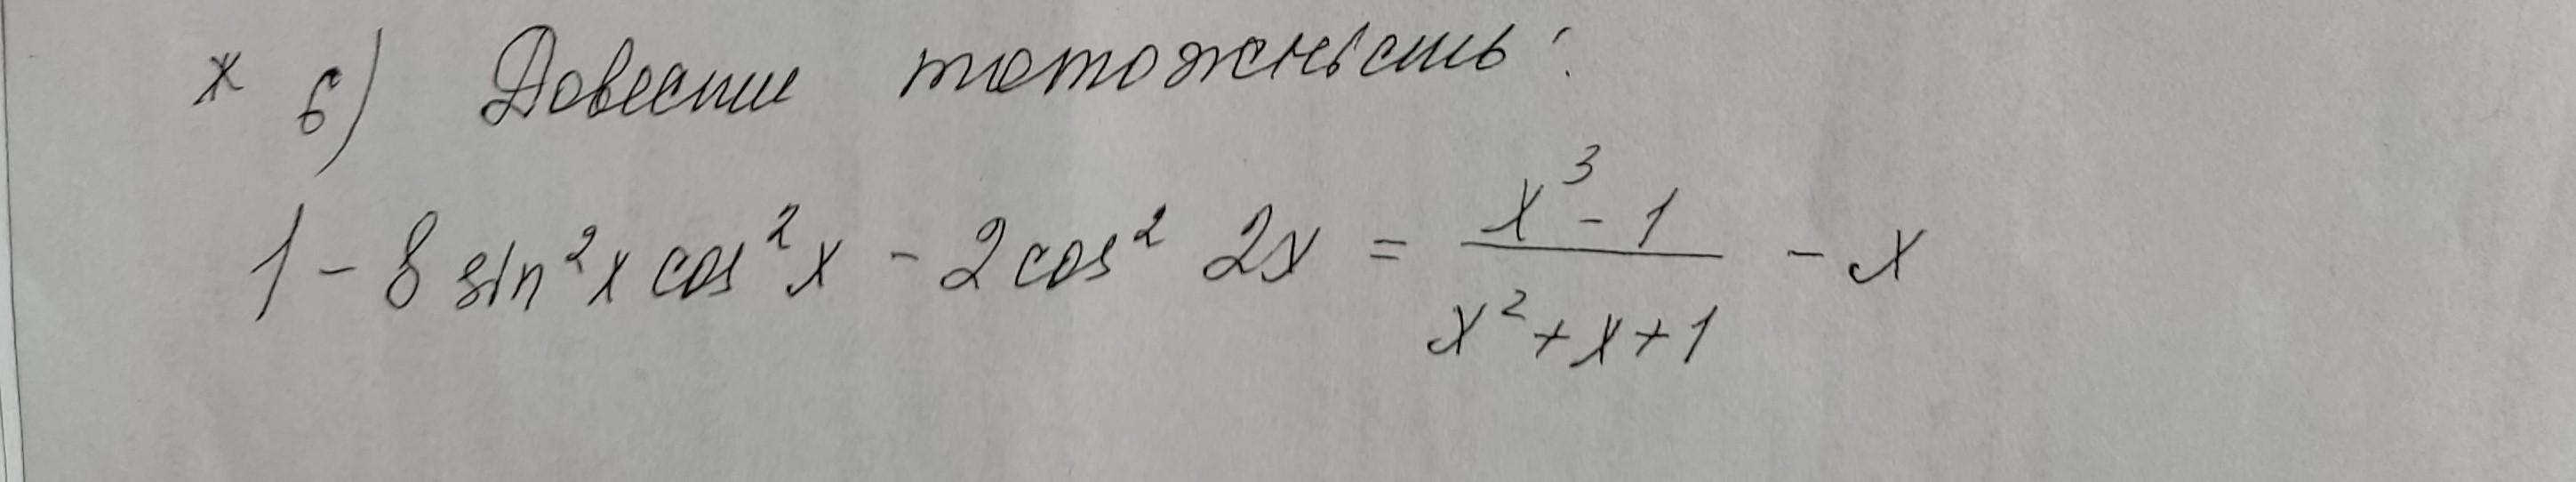 * б) Довести тотожність:
1 - 8 sin²x cos²x - 2cos² 2x = (x³ - 1)/(x² + x + 1) - x